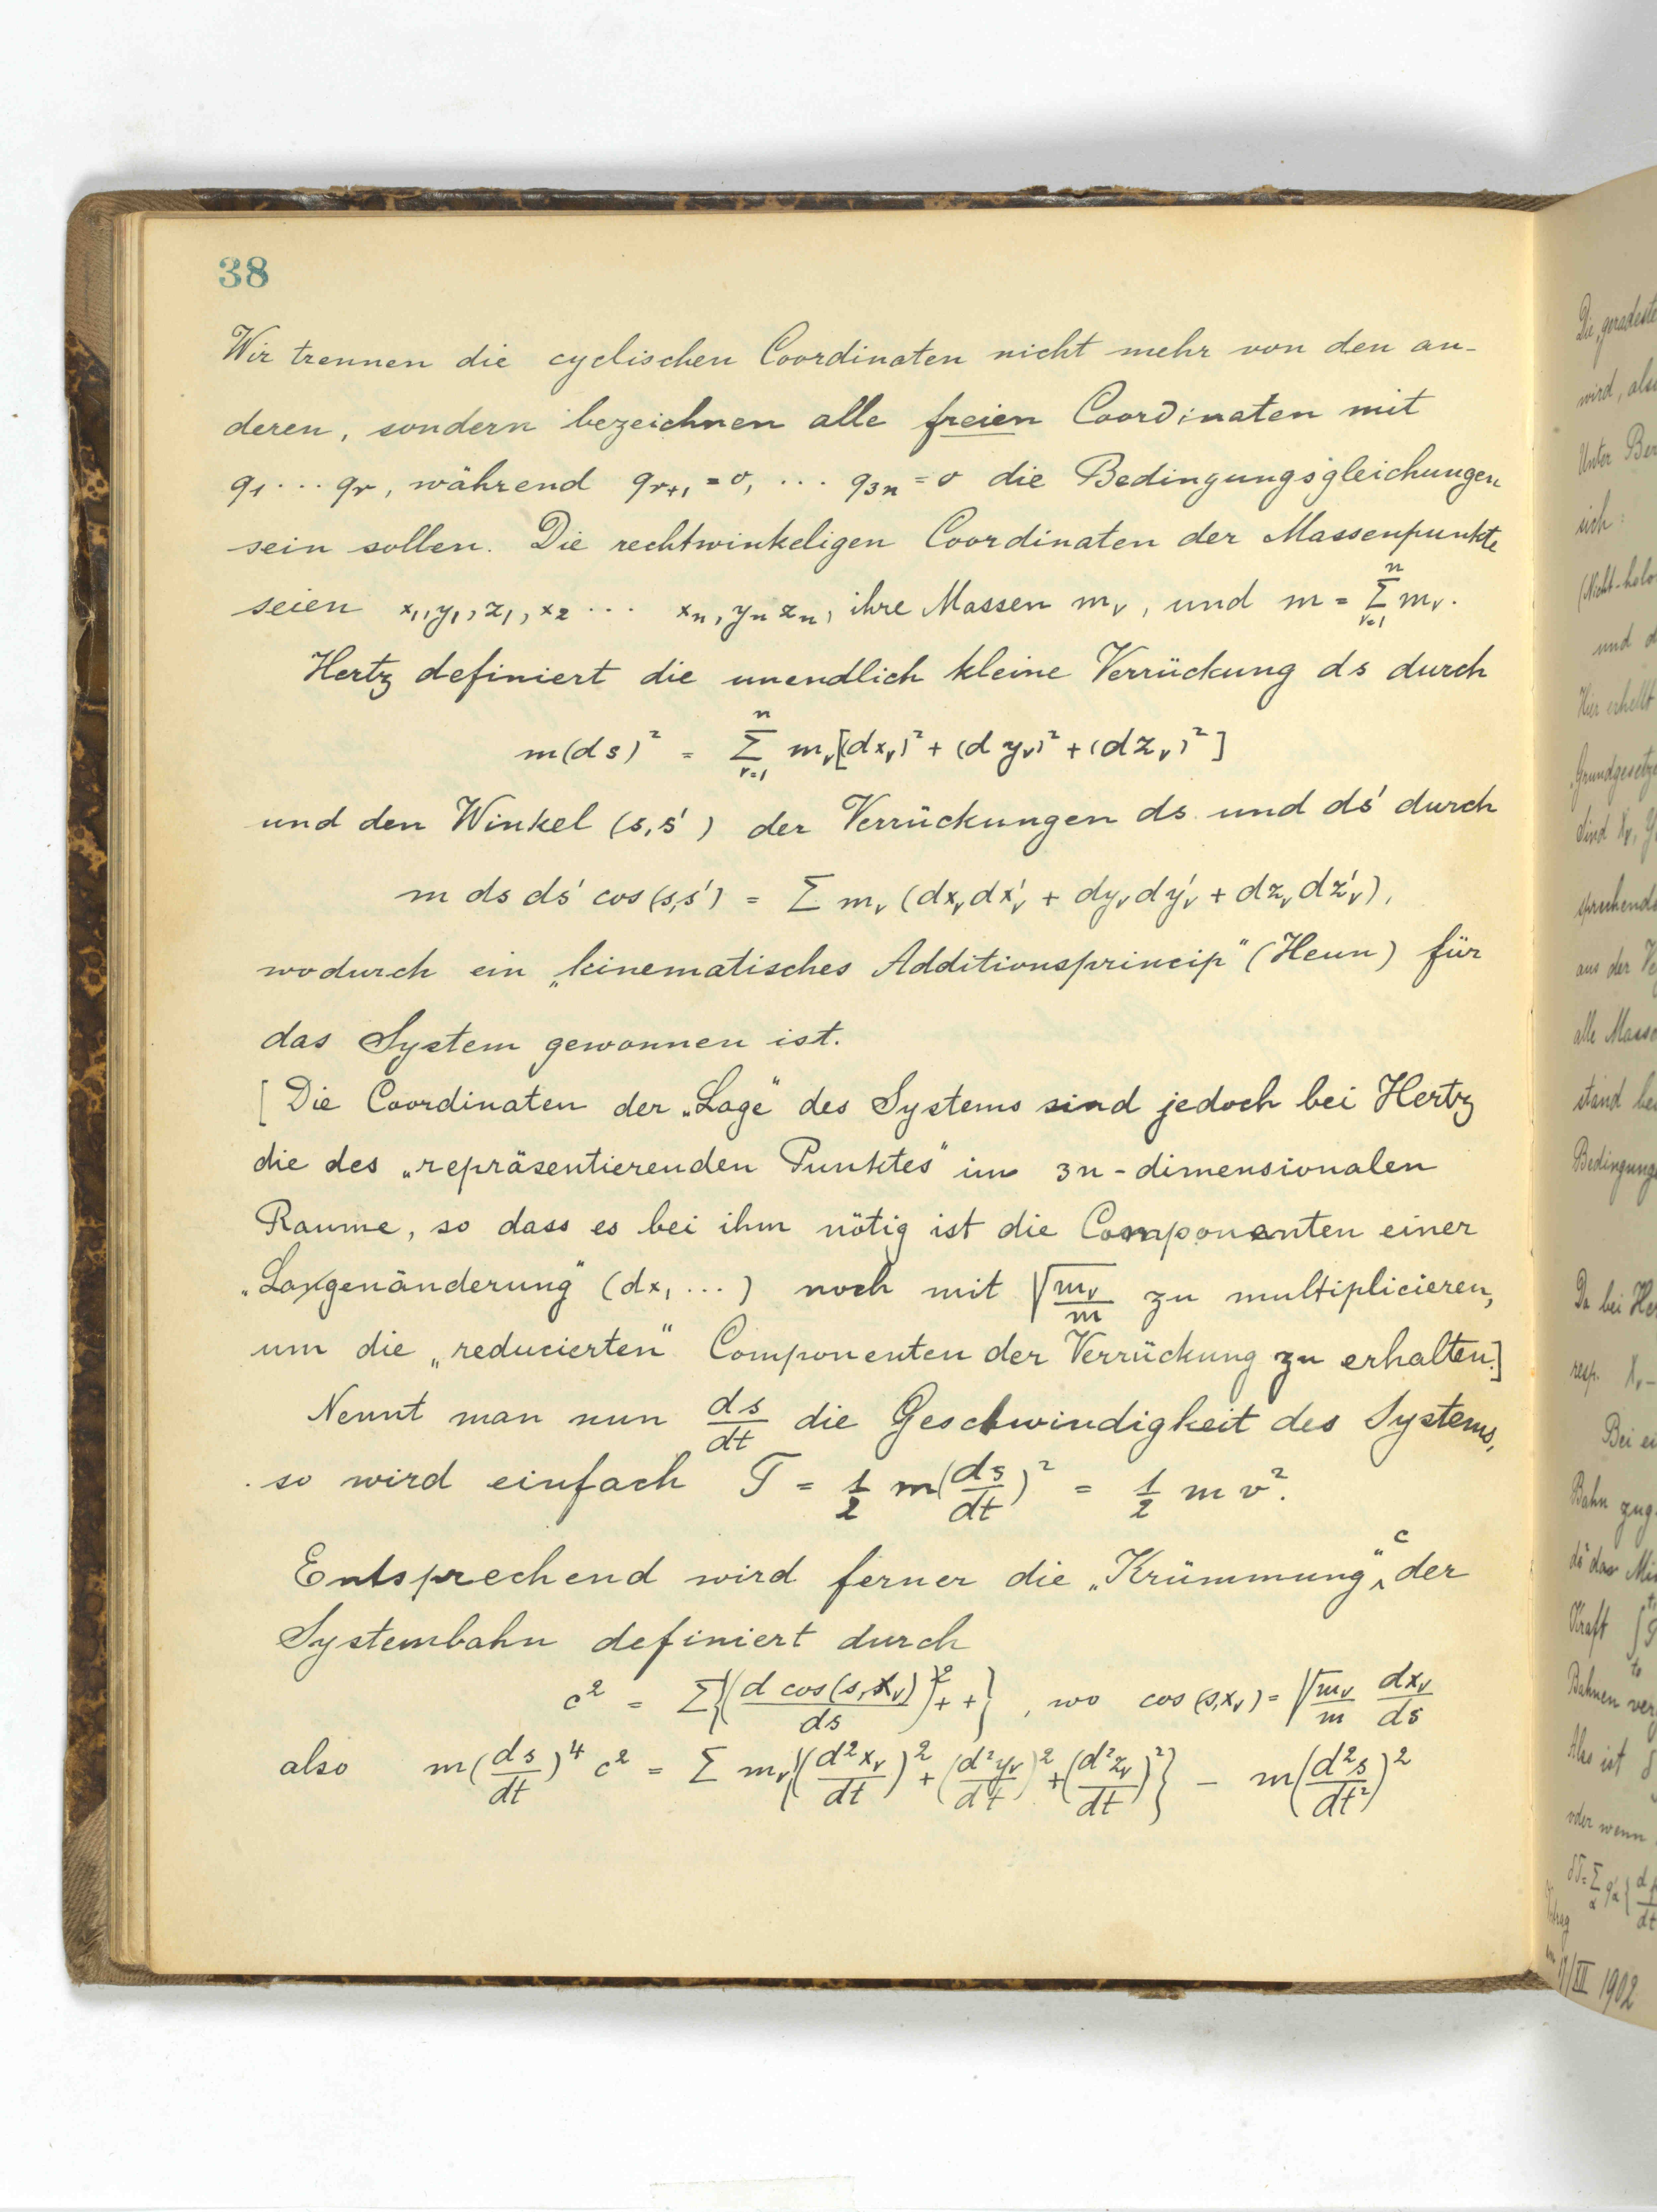 38
Wir trennen die cyclischen Coordinaten nicht mehr von den an-
deren, sondern bezeichnen alle freien Coordinaten mit
q₁ ... qᵣ, während qᵣ₊₁ = 0, ... q₃ₙ = 0 die Bedingungsgleichungen
sein sollen. Die rechtwinkeligen Coordinaten der Massenpunkte
seien x₁, y₁, z₁, x₂ ... xₙ, yₙ zₙ, ihre Massen mᵥ, und m = Σᵥ₌₁ⁿ mᵥ.
Hertz definiert die unendlich kleine Verrückung ds durch
m(ds)² = Σᵥ₌₁ⁿ mᵥ[(dxᵥ)² + (dyᵥ)² + (dzᵥ)²]
und den Winkel (s, s') der Verrückungen ds und ds' durch
m ds ds' cos(s,s') = Σ mᵥ (dxᵥ dx'ᵥ + dyᵥ dy'ᵥ + dzᵥ dz'ᵥ),
wodurch ein „kinematisches Additionsprincip" (Heun) für
das System gewonnen ist.
[Die Coordinaten der „Lage" des Systems sind jedoch bei Hertz
die des „repräsentierenden Punktes" im 3n-dimensionalen
Raume, so dass es bei ihm nötig ist die Componenten einer
„Lagenänderung" (dx₁ ...) noch mit √(mᵥ/m) zu multiplicieren,
um die „reducierten" Componenten der Verrückung zu erhalten.]
Nennt man nun ds/dt die Geschwindigkeit des Systems,
so wird einfach T = 1/2 m(ds/dt)² = 1/2 m v².
Entsprechend wird ferner die „Krümmung" c der
Systembahn definiert durch
c² = Σ{(d cos(s,xᵥ)/ds)² + +}, wo cos(s,xᵥ) = √(mᵥ/m) dxᵥ/ds
also m(ds/dt)⁴ c² = Σ mᵥ{(d²xᵥ/dt)² + (d²yᵥ/dt)² + (d²zᵥ/dt)²} − m(d²s/dt²)²
Die „geradeste
wird, also
Unter Ber
sich:
(Nicht-holo
und d
Hier erhellt
Grundgesetz
sind Xᵥ, Y
sprechend
aus der Ve
alle Masse
stand be
Bedingung
Da bei He
resp. Xᵥ -
Bei ei
Bahn zug
Kraft
Bahnen ver
Also ist δ
oder wenn
1902